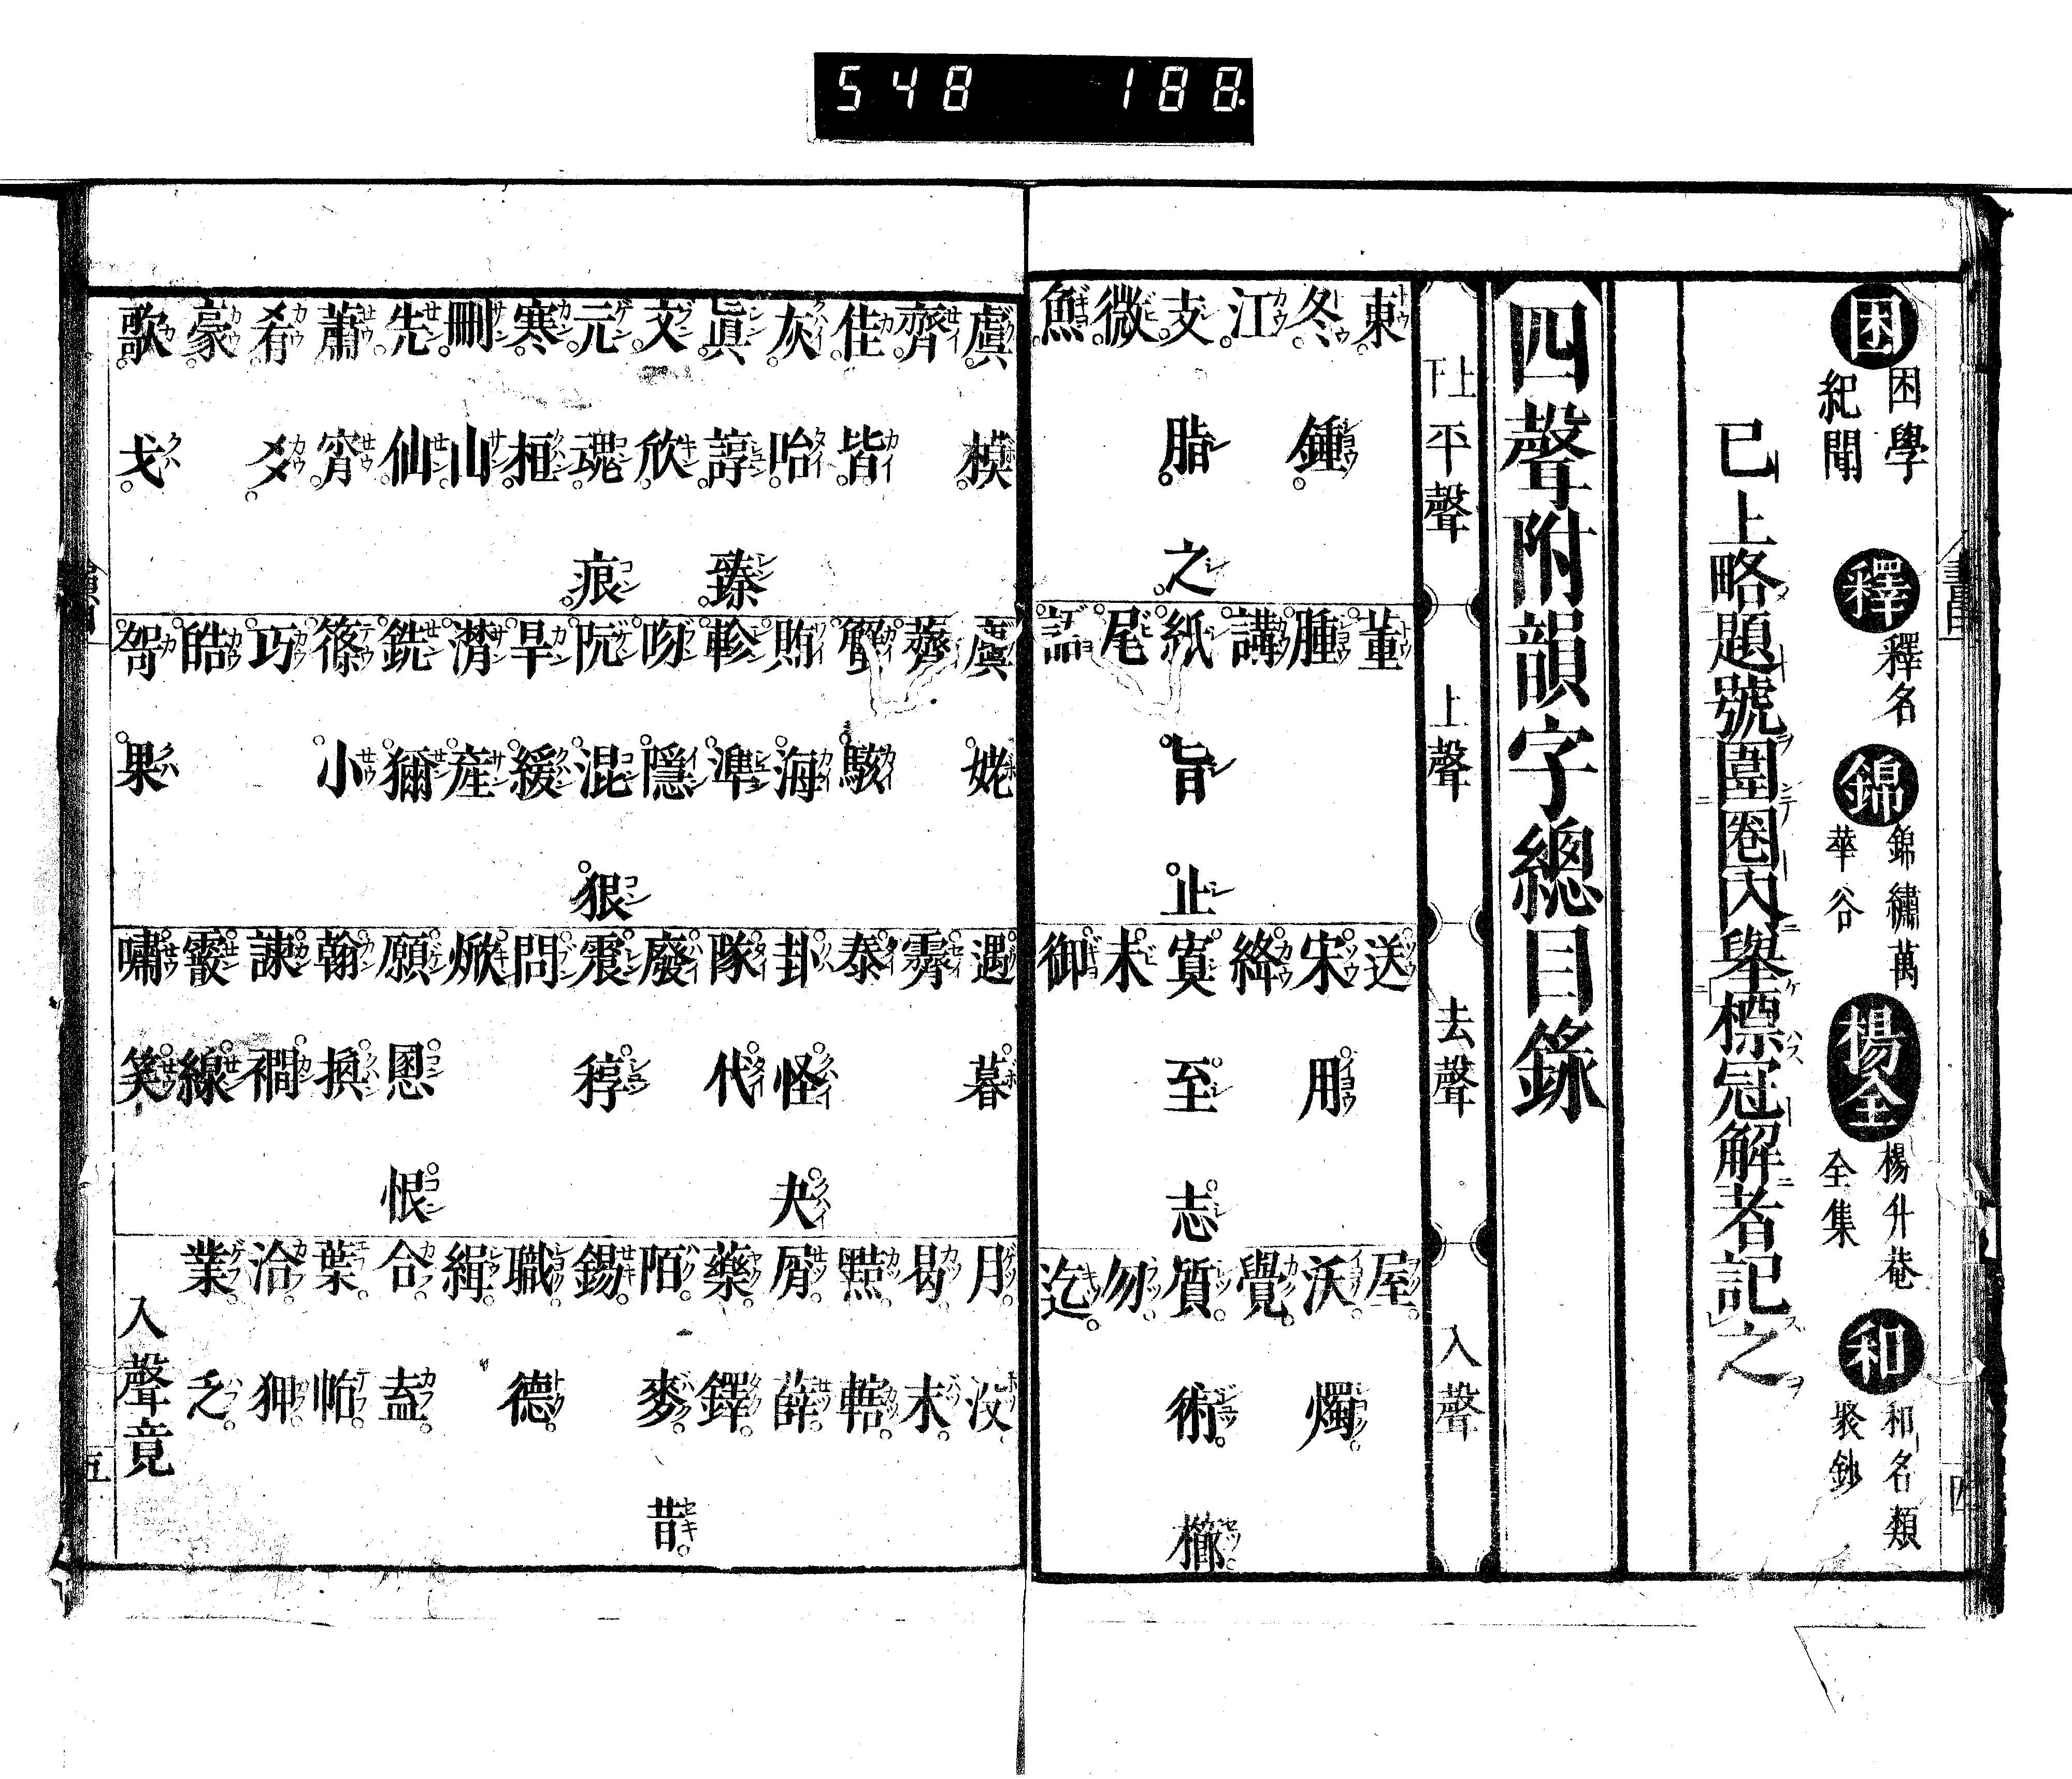 548 188.
困 困學紀聞 釋 釋名 錦 錦繡萬華谷 楊全 楊升菴全集 和 和名類聚鈔
已上略題號圍卷内舉標冠解者記之
四聲附韻字總目錄
上下平聲 上聲 去聲 入聲
東 董 送 屋
冬 鍾 腫 宋 用 沃 燭
江 講 絳 覺
支 脂 之 紙 旨 止 寘 至 志 質 術 櫛
微 尾 未 勿
魚 語 御 迄
虞 模 麌 姥 遇 暮 月 沒
齊 薺 霽 曷 末
佳 皆 蟹 駭 泰 黠 轄
灰 咍 賄 海 卦 怪 夬 屑 薛
眞 諄 臻 軫 準 隊 代 藥 鐸
文 欣 吻 隱 廢 陌 麥 昔
元 魂 痕 阮 混 狠 震 稕 錫
寒 桓 旱 緩 問 職 德
刪 山 潸 産 焮 緝
先 仙 銑 獮 願 慁 恨 合 盍
蕭 宵 篠 小 翰 換 葉 帖
肴 爻 巧 諫 襇 洽 狎
豪 皓 霰 線 業 乏
歌 戈 哿 果 嘯 笑 入聲竟
五